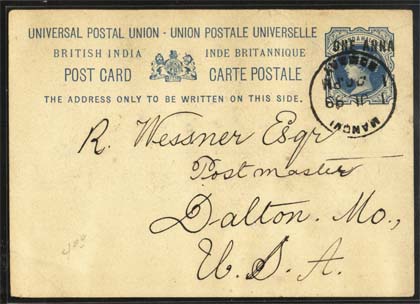 UNIVERSAL POSTAL UNION - UNION POSTALE UNIVERSELLE
BRITISH INDIA INDE BRITANNIQUE
POST CARD CARTE POSTALE
THE ADDRESS ONLY TO BE WRITTEN ON THIS SIDE.
ONE ANNA
R. Wessner Esqr
Postmaster
Dalton. Mo.,
U. S. A.